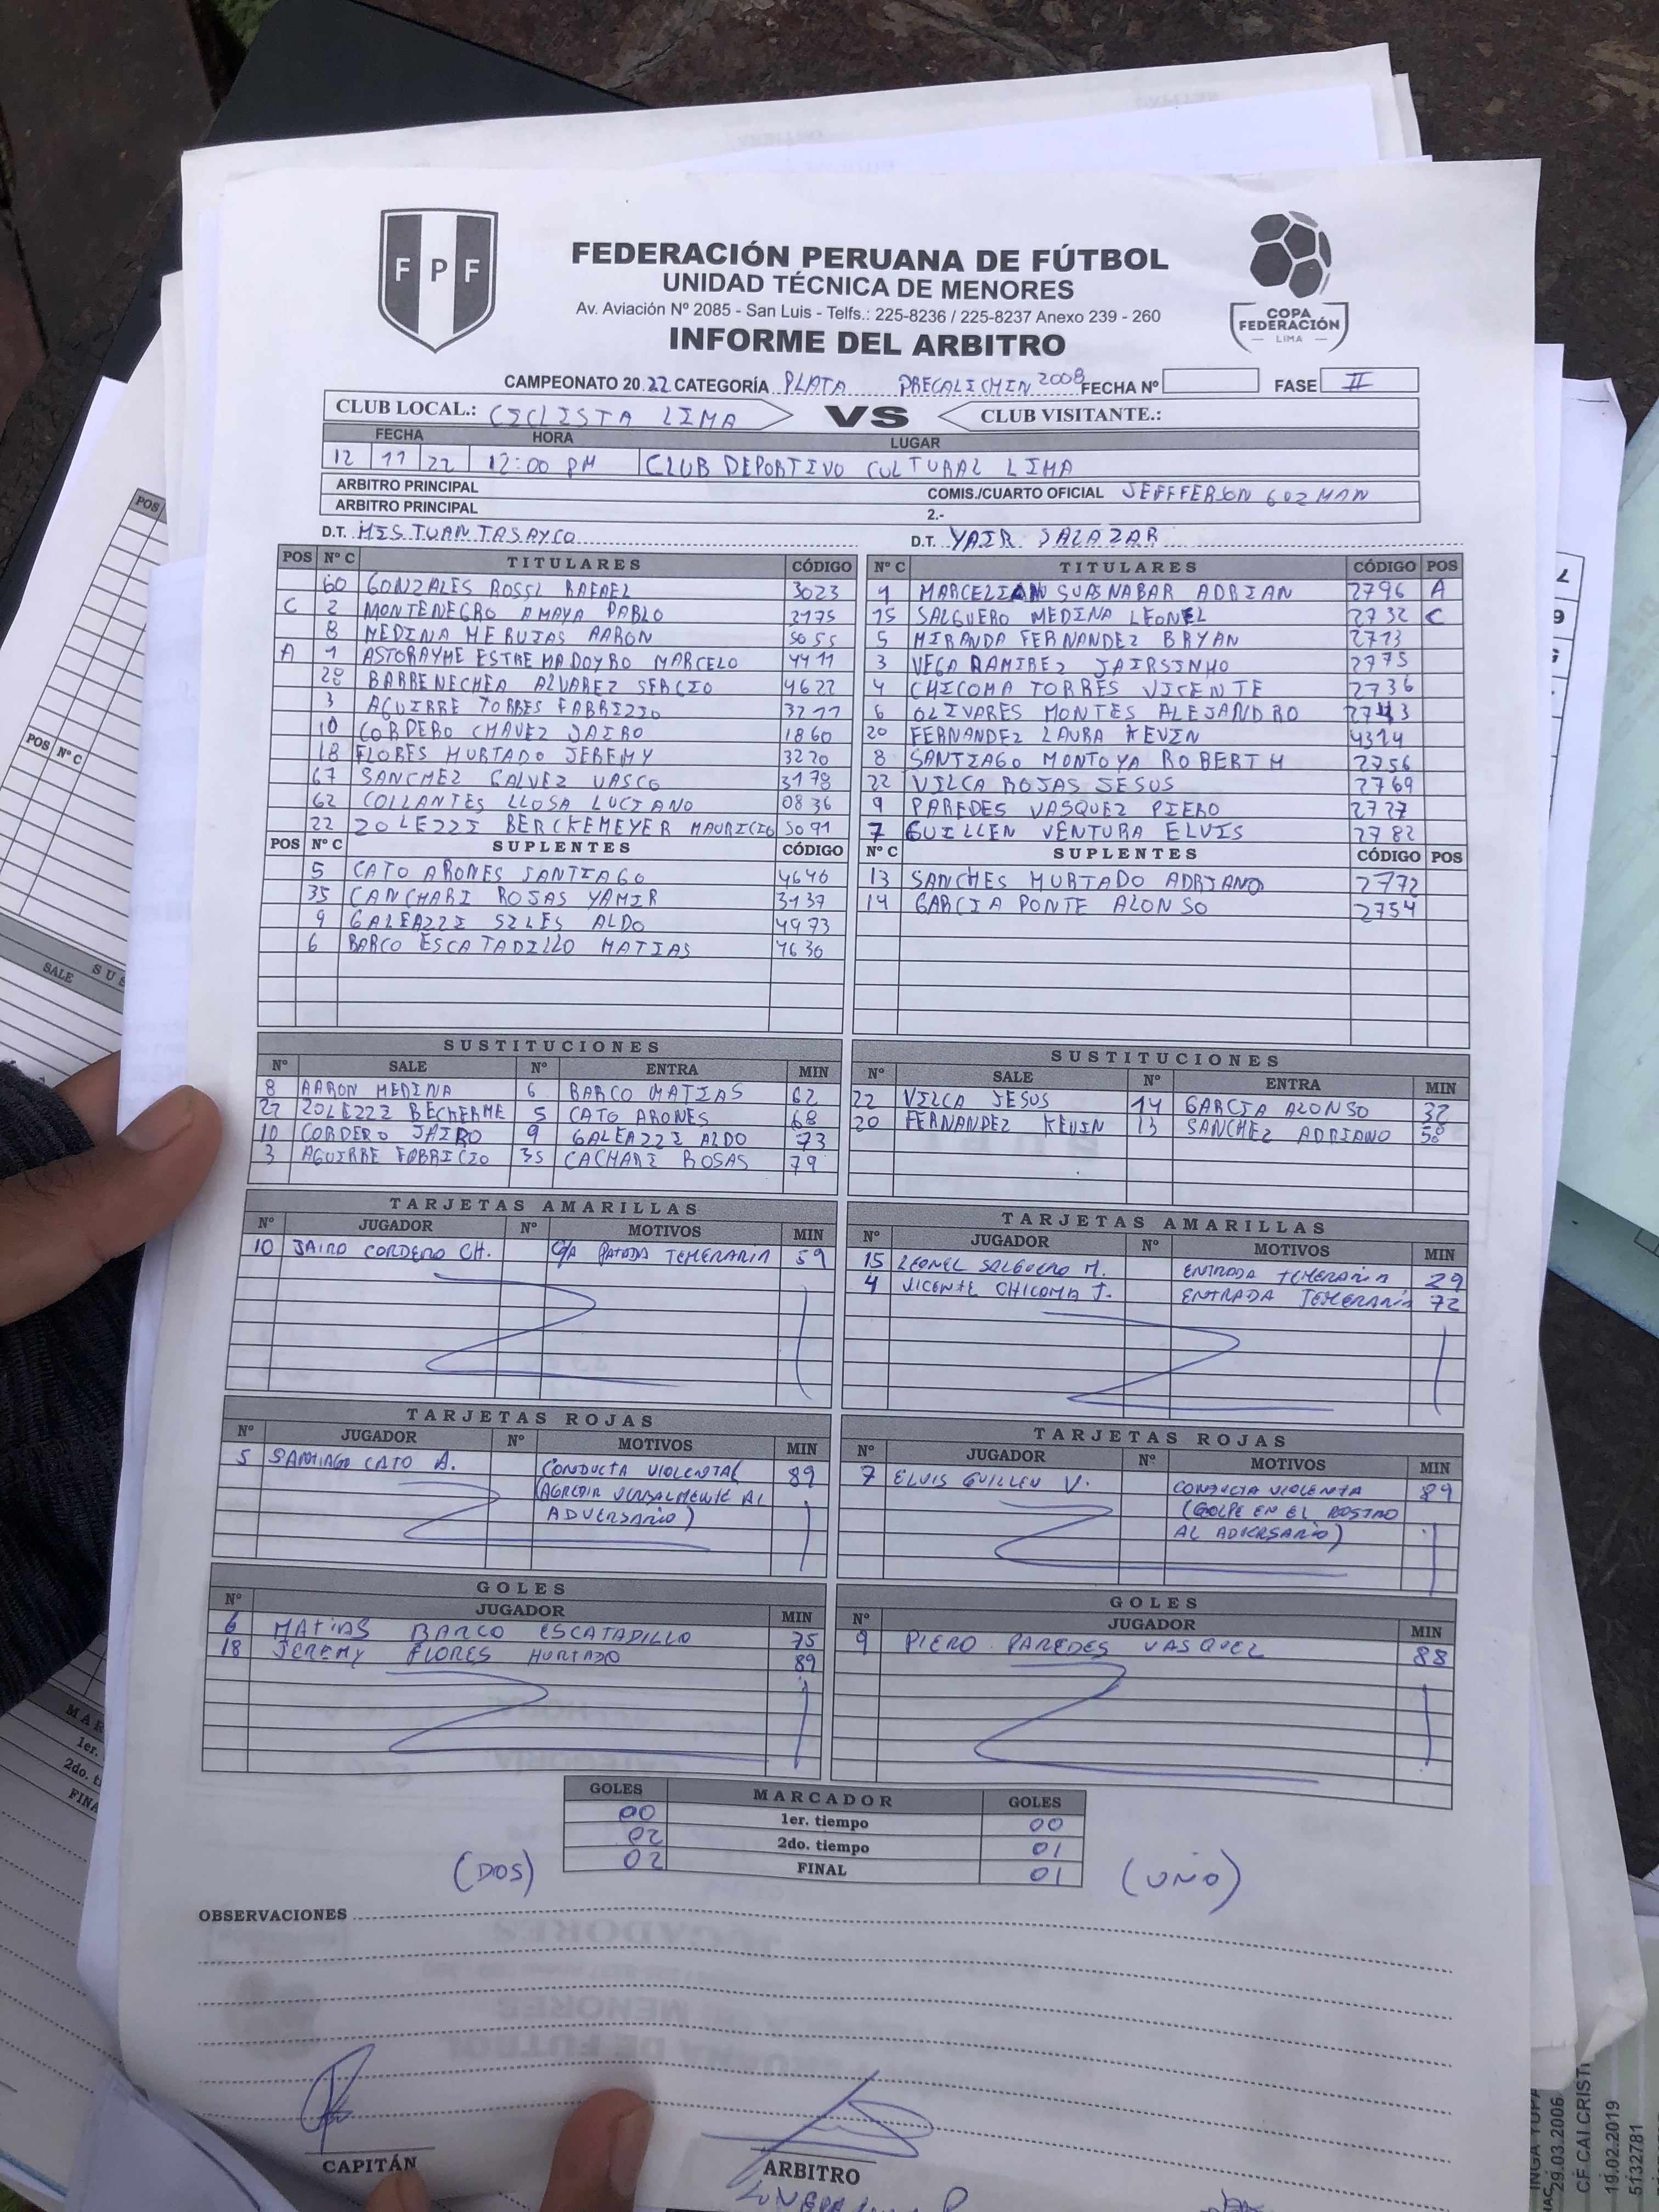 FPF
FEDERACIÓN PERUANA DE FÚTBOL
UNIDAD TÉCNICA DE MENORES
Av. Aviación Nº 2085 - San Luis - Telfs.: 225-8236 / 225-8237 Anexo 239 - 260
INFORME DEL ARBITRO
COPA
FEDERACIÓN
LIMA
CAMPEONATO 20.22 CATEGORÍA PLATA PRECALICHIN 2008 FECHA Nº FASE II
CLUB LOCAL.: CICLISTA LIMA VS CLUB VISITANTE.:
FECHA HORA LUGAR
12 11 22 12:00 PM CLUB DEPORTIVO CULTURAL LIMA
ARBITRO PRINCIPAL COMIS./CUARTO OFICIAL JEFFFERSON GUZMAN
ARBITRO PRINCIPAL 2.-
D.T. D.T. YAIR SALAZAR
POS Nº C TITULARES CÓDIGO Nº C TITULARES CÓDIGO POS
60 GONZALES ROSSL RAFAEL 3023 1 SUASNABAR ADRIAN 2796 A
C 2 MONTENEGRO AMAYA PABLO 2175 15 SALGUERO MEDINA LEONEL 2732 C
8 MEDINA MERUJAS AARON 5055 5 MIRANDA FERNANDEZ BRYAN 2713
A 1 ASTORAYME ESTREMADOYRO MARCELO 4411 3 VEGA RAMIREZ JAIRSINHO 2775
28 BARRENECHEA ALVAREZ SERGIO 4622 4 CHICOMA TORRES VICENTE 2736
3 AGUIRRE TORRES FABRIZZIO 3211 6 OLIVARES MONTES ALEJANDRO 2743
10 CORDERO CHAVEZ JAIRO 1860 20 FERNANDEZ LAURA KEVIN 4314
18 FLORES HURTADO JEREMY 3220 8 SANTIAGO MONTOYA ROBERTH 2756
67 SANCHEZ GALVEZ VASCO 3178 22 VILCA ROJAS JESUS 2769
62 COLLANTES LLOSA LUCIANO 0836 9 PAREDES VASQUEZ PIERO 2727
22 ZOLEZZI BERCKEMEYER MAURICIO 5091 7 GUILLEN VENTURA ELVIS 2782
POS Nº C SUPLENTES CÓDIGO Nº C SUPLENTES CÓDIGO POS
5 CATO ARONES SANTIAGO 4646 13 SANCHES HURTADO ADRIANO 2772
35 CANCHARI ROJAS YAMIR 3137 14 GARCIA PONTE ALONSO 2754
9 GALEAZZI SILES ALDO 4973
6 BARCO ESCATADILLO MATIAS 4636
SUSTITUCIONES SUSTITUCIONES
Nº SALE Nº ENTRA MIN Nº SALE Nº ENTRA MIN
8 AARON MEDINA 6 BARCO MATIAS 62 22 VILCA JESUS 14 GARCIA ALONSO 32
22 ZOLEZZI BECHERME 5 CATO ARONES 68 20 FERNANDEZ KEVIN 13 SANCHEZ ADRIANO
10 CORDERO JAIRO 9 GALEAZZI ALDO 73
3 AGUIRRE FABRICIO 35 CACHARI ROSAS 79
TARJETAS AMARILLAS TARJETAS AMARILLAS
Nº JUGADOR Nº MOTIVOS MIN Nº JUGADOR Nº MOTIVOS MIN
10 JAIRO CORDERO CH. PATADA TEMERARIA 59 15 LEONEL SALGUERO M. ENTRADA TEMERARIA 29
4 VICENTE CHICOMA T. ENTRADA TEMERARIA 72
TARJETAS ROJAS TARJETAS ROJAS
Nº JUGADOR Nº MOTIVOS MIN Nº JUGADOR Nº MOTIVOS MIN
5 SANTIAGO CATO A. CONDUCTA VIOLENTA 89 7 ELVIS GUILLEN V. CONDUCTA VIOLENTA 89
(AGREDIR VERBALMENTE AL (GOLPE EN EL ROSTRO
ADVERSARIO) AL ADVERSARIO)
GOLES GOLES
Nº JUGADOR MIN Nº JUGADOR MIN
6 MATIAS BARCO ESCATADILLO 75 9 PIERO PAREDES VASQUEZ 88
18 JEREMY FLORES HURTADO 89
GOLES MARCADOR GOLES
00 1er. tiempo 00
02 2do. tiempo 01
(DOS) 02 FINAL 01 (UNO)
OBSERVACIONES
CAPITÁN
ARBITRO
POS
POS Nº C
SALE
1er.
2do. t
FINA
29.03.2006
CF CAI CRISTI
19.02.2019
5132781